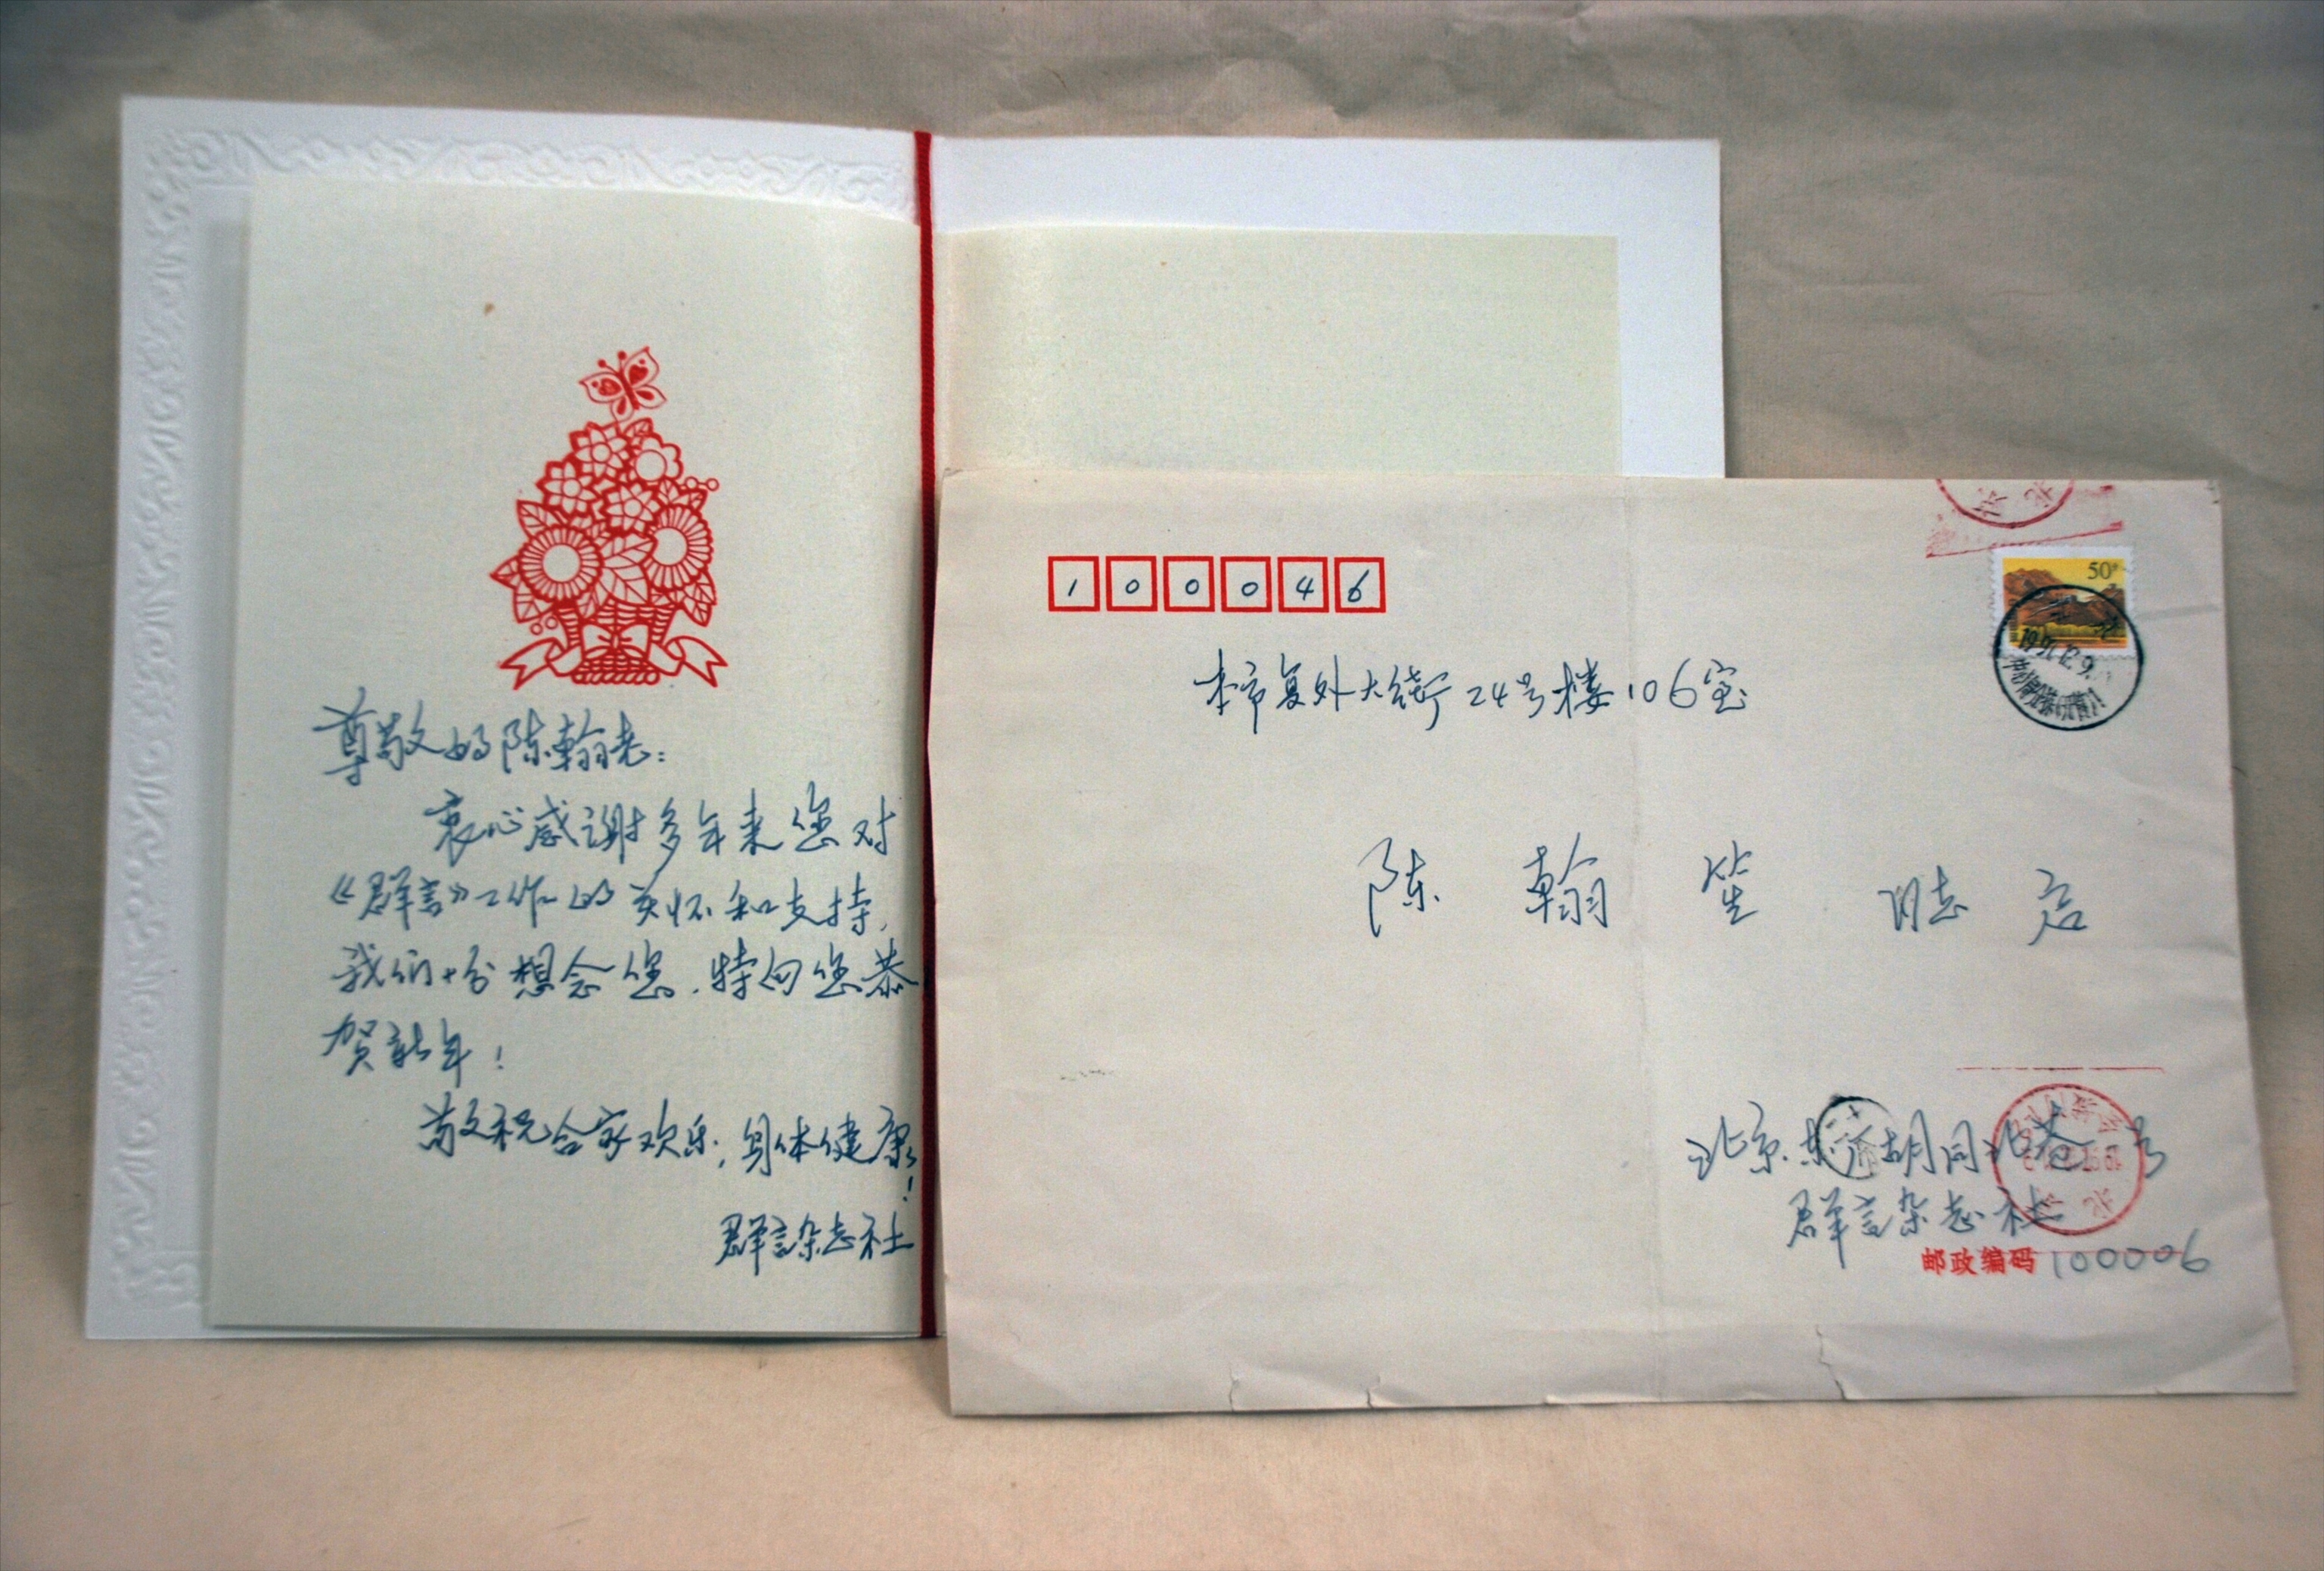 尊敬的陈翰老：
衷心感谢多年来您对
《群言》工作的关怀和支持，
我们十分想念您，特向您恭
贺新年！
敬祝合家欢乐，身体健康！
群言杂志社
100046
50分
本市复外大街24号楼106室
陈翰笙 同志 启
北京东 胡同北巷 号
群言杂志社
邮政编码100006